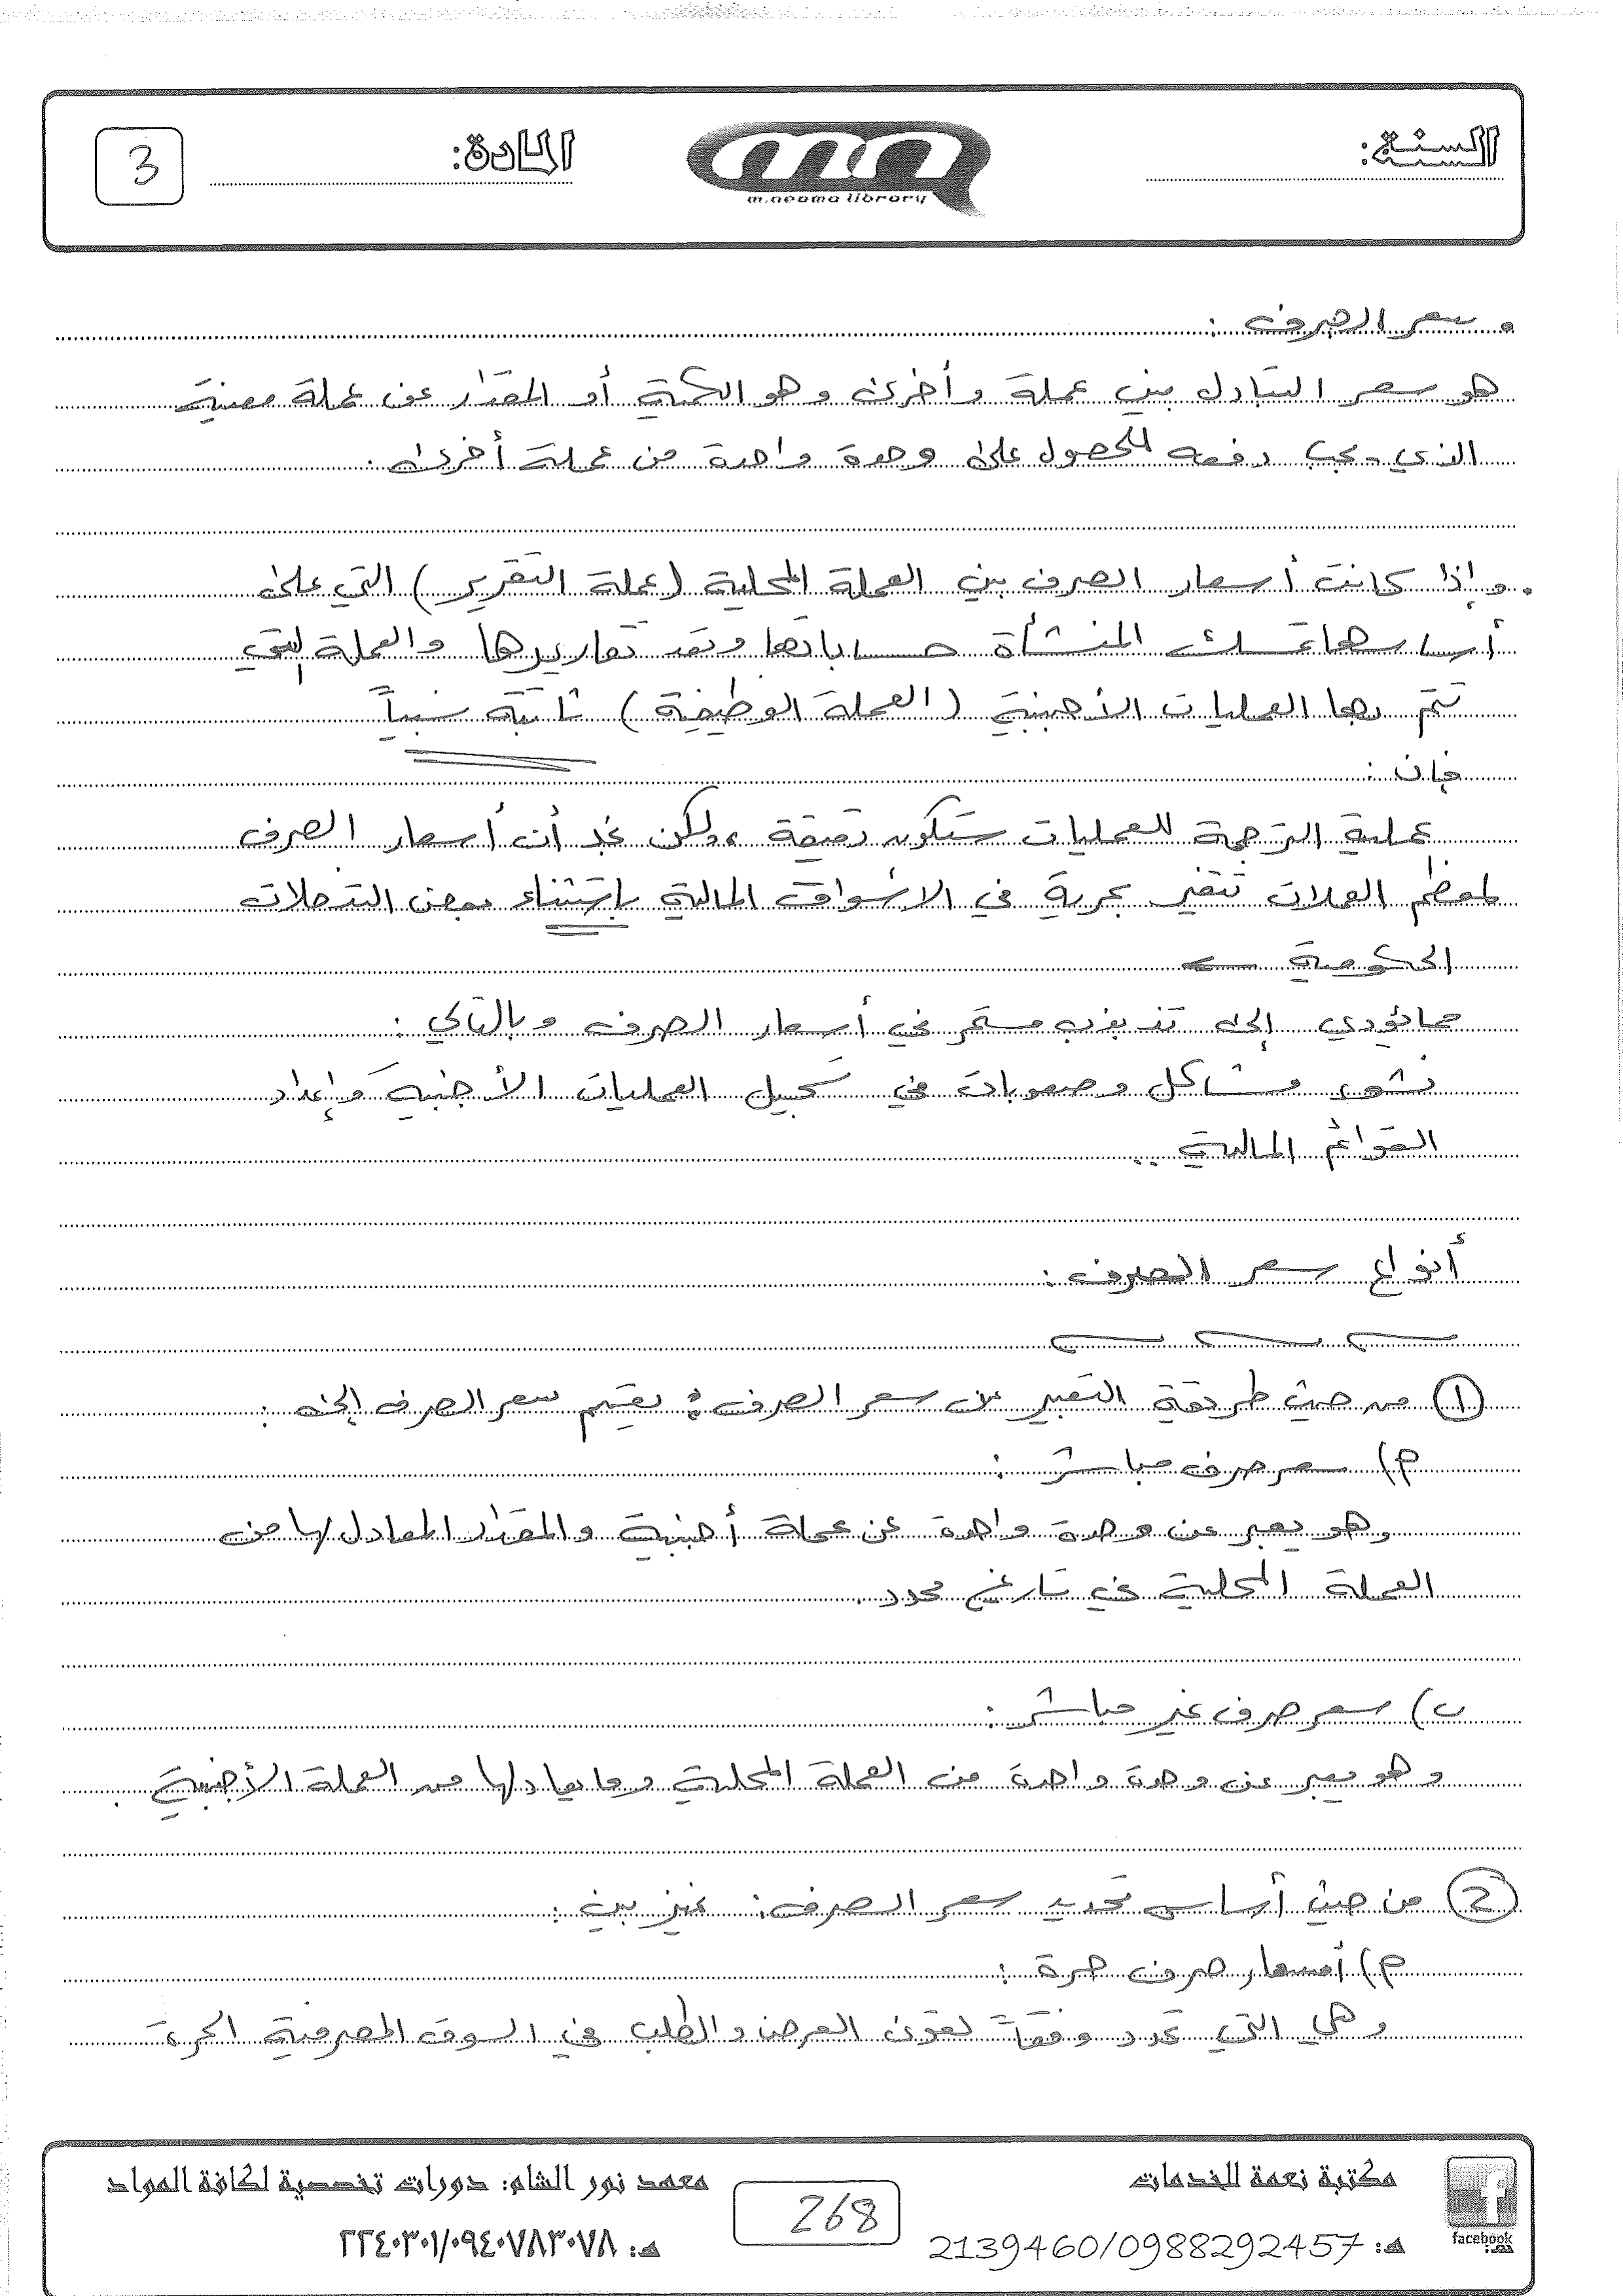 السنة:
m.neama library
المادة:
3
• سعر الصرف :
هو سعر التبادل بين عملة وأخرى وهو الكمية أو المقدار عن عملة معينة
الذي يجب دفعه للحصول على وحدة واحدة من عملة أخرى .
• وإذا كانت أسعار الصرف بين العملة المحلية (عملة التقرير) التي على
أساسها تمسك المنشأة حساباتها وتعد تقاريرها والعملة التي
تتم بها العمليات الأجنبية (العملة الوظيفية) ثابتة نسبياً
فإن :
عملية الترجمة للعمليات ستكون دقيقة ، ولكن نجد أن أسعار الصرف
لمعظم العملات تتغير بحرية في الاسواق المالية باستثناء بعض التدخلات
الحكومية ←
مما يؤدي إلى تذبذب مستمر في أسعار الصرف وبالتالي :
نشوء مشاكل وصعوبات في تسجيل العمليات الأجنبية وإعداد
القوائم المالية ..
أنواع سعر الصرف :
① من حيث طريقة التعبير عن سعر الصرف : يقسم سعر الصرف إلى :
م) سعر صرف مباشر :
وهو يعبر عن وحدة واحدة عن عملة أجنبية والمقدار المعادل لها من
العملة المحلية في تاريخ محدد .
ب) سعر صرف غير مباشر :
وهو يعبر عن وحدة واحدة من العملة المحلية وما يعادلها من العملة الأجنبية .
② من حيث أساس تحديد سعر الصرف : نميز بين :
م) أسعار صرف حرة :
وهي التي تحدد وفقاً لقوى العرض والطلب في السوق المصرفية الحرة
مكتبة نعمة للخدمات
هـ: 2139460/0988292457
facebook
268
معهد نور الشام: دورات تخصصية لكافة المواد
هـ: ٢٢٤٠٣٠١/٠٩٤٠٧٨٣٠٧٨